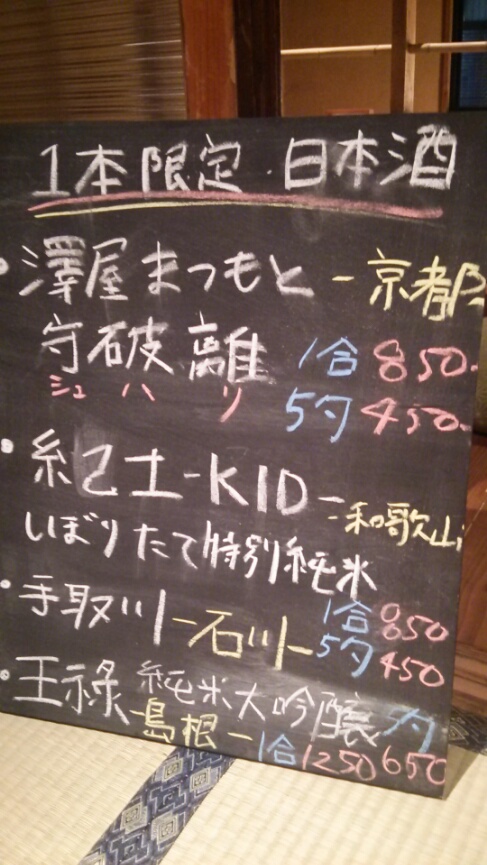 1本限定・日本酒
・澤屋まつもと-京都
守破離 1合 850-
シュ ハ リ 5勺 450-
・紀土-KID-和歌山
しぼりたて特別純米
・手取川-石川- 1合 850
5勺 450
・王祿 純米大吟醸 勺
島根- 1合 1250 650